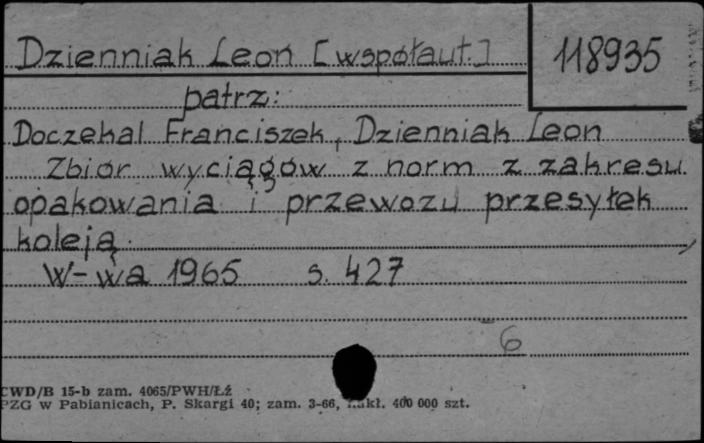 Dzienniak Leon [współaut.]
118935
patrz:
Doczekal Franciszek, Dzienniak Leon
Zbiór wyciągów z norm z zakresu
opakowania i przewozu przesyłek
koleją.
W-wa 1965 s. 427
6
CWD/B 15-b zam. 4065/PWH/Łź
PZG w Pabianicach, P. Skargi 40; zam. 3-66, nakł. 400 000 szt.